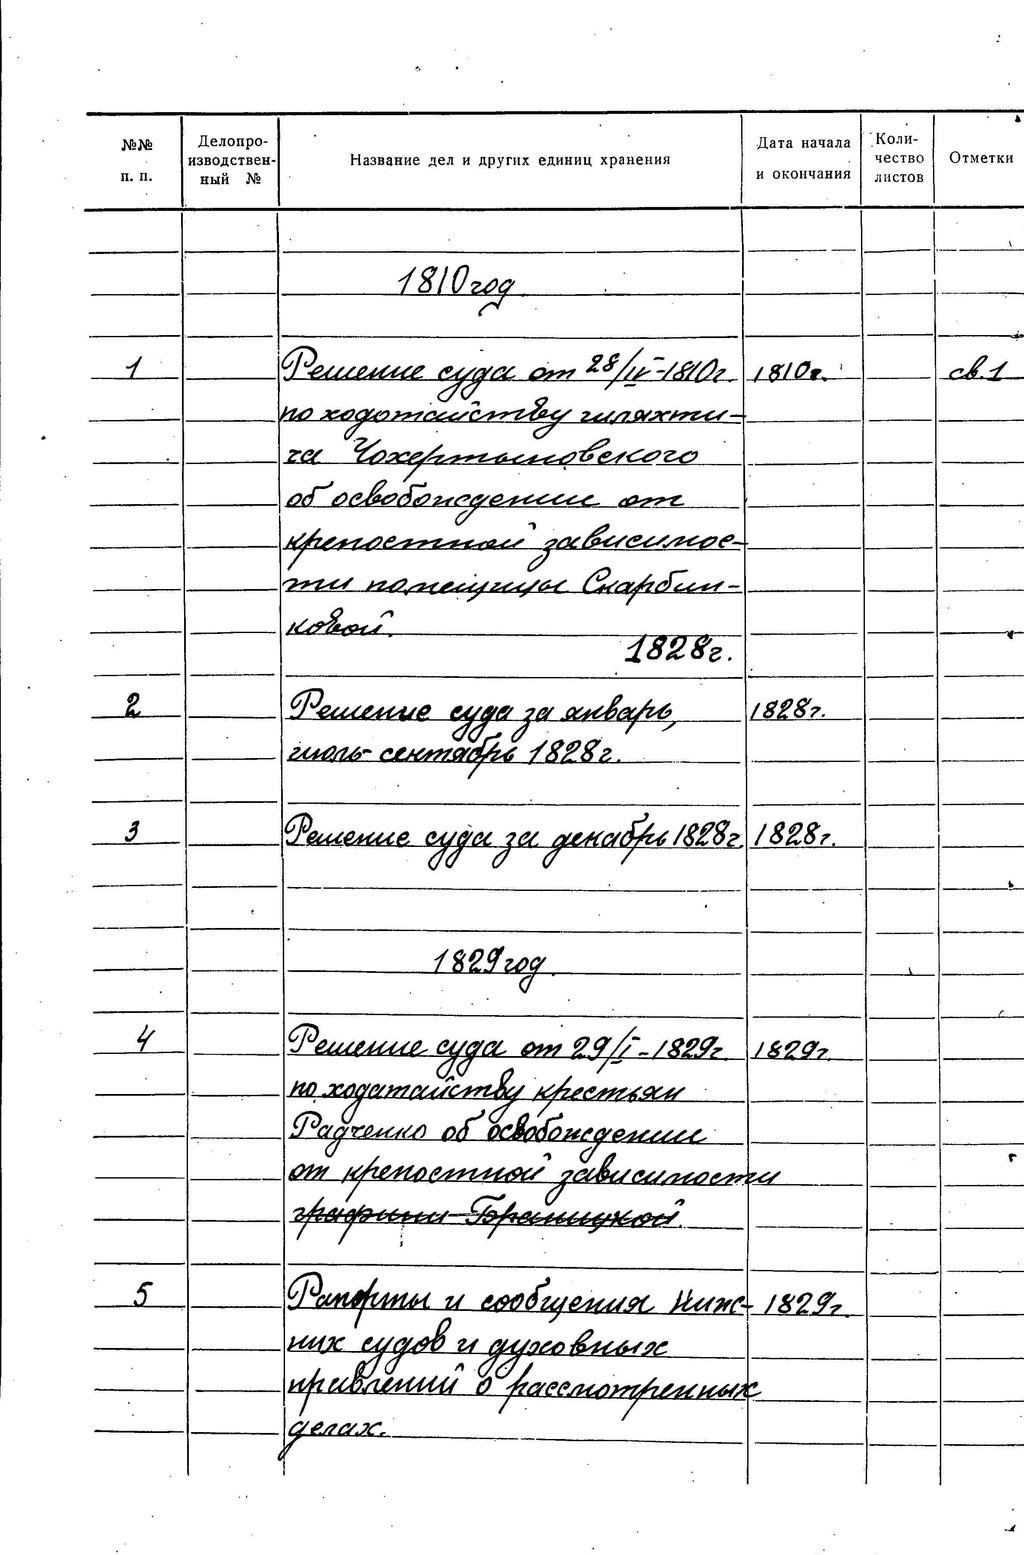 №№ п. п.
Делопроизводственный №
Название дел и других единиц хранения
Дата начала и окончания
Количество листов
Отметки
1810 год
1 Решение суда от 28/IV-1810г. 1810г. св.1
по ходотайству шляхти-
ча Чохертыновского
об освобождении от
крепостной зависимос-
ти помещицы Скарбин-
ковой.
1828г.
2 Решение суда за январь, 1828г.
июль-сентябрь 1828г.
3 Решение суда за декабрь 1828г. 1828г.
1829 год.
4 Решение суда от 29/I-1829г. 1829г.
по ходатайству крестьян
Радченко об освобождении
от крепостной зависимости
графини Браницкой.
5 Рапорты и сообщения Ниж- 1829г.
них судов и духовных
правлений о рассмотренных
делах.